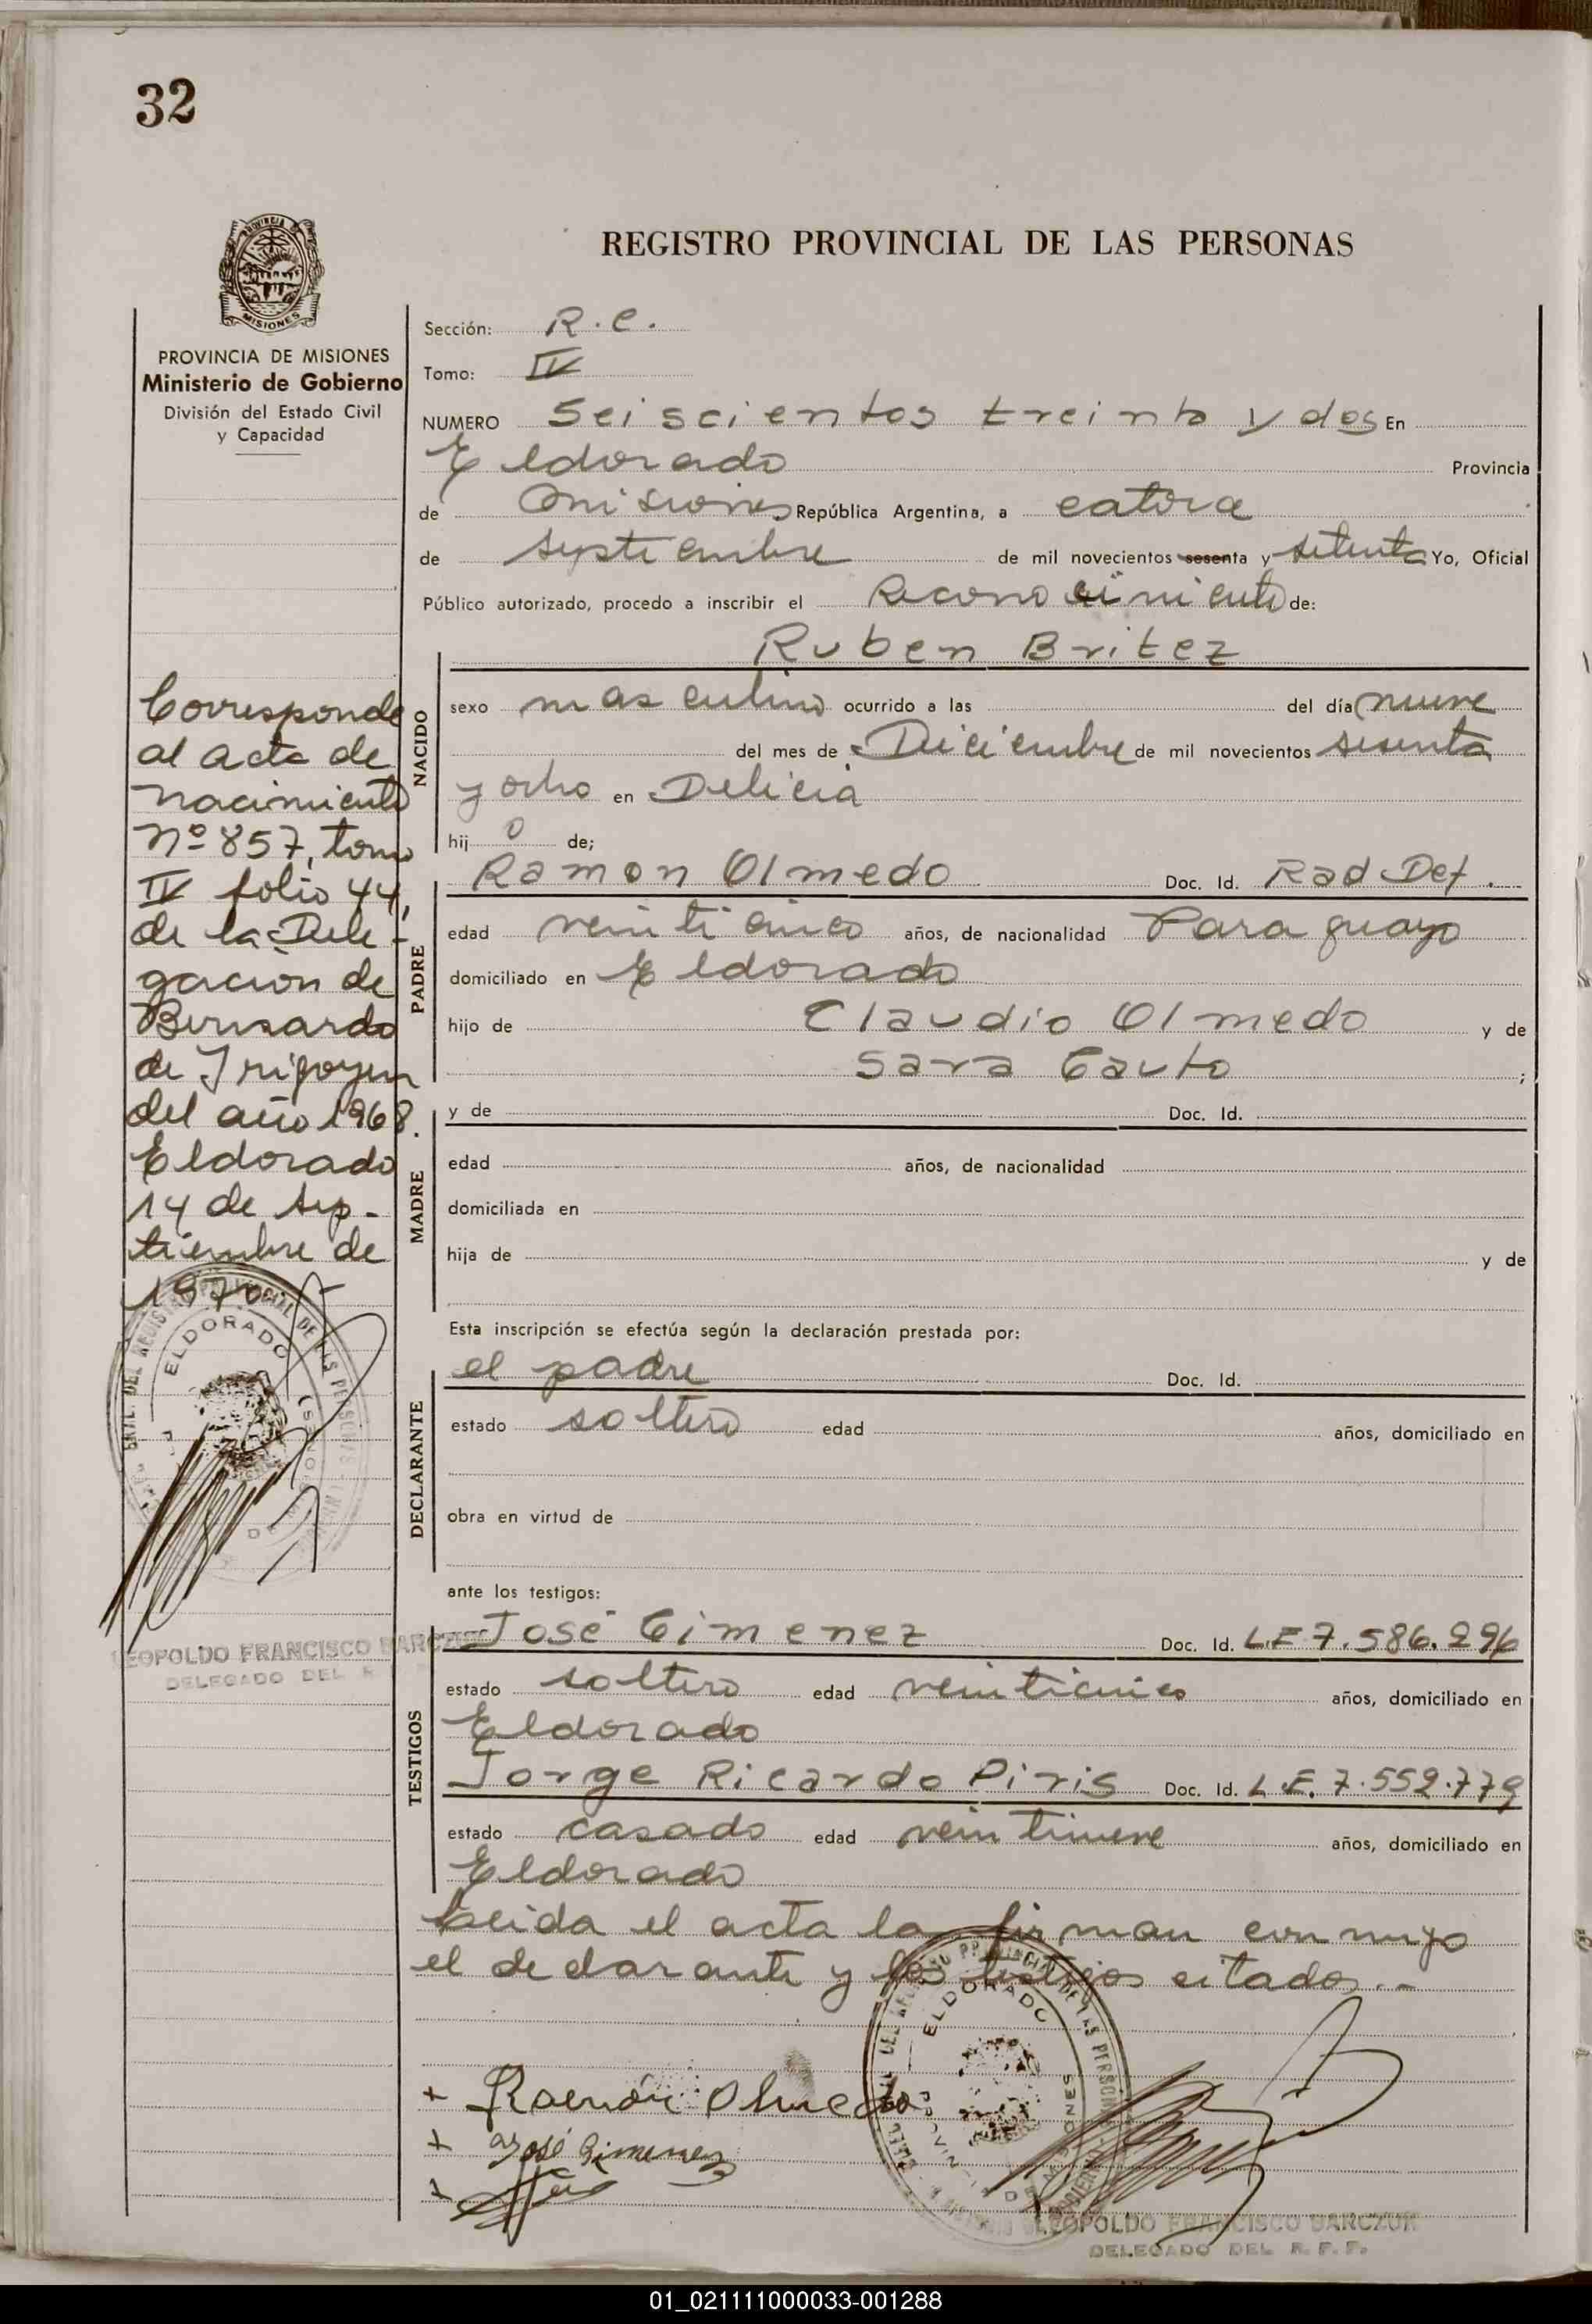 32
REGISTRO PROVINCIAL DE LAS PERSONAS
MISIONES
PROVINCIA DE MISIONES
Ministerio de Gobierno
División del Estado Civil
y Capacidad
Corresponde
al acta de
nacimiento
Nº 857, tomo
IV folio 44,
de la Dele-
gación de
Bernardo
de Irigoyen
del año 1968.
Eldorado
14 de sep-
tiembre de
1970
ELDORADO
LEOPOLDO FRANCISCO
DELEGADO DEL R
Sección: R.C.
Tomo: IV
NUMERO Seiscientos treinta y dos En
Eldorado Provincia
de Misiones República Argentina, a catorce
de septiembre de mil novecientos sesenta y setenta Yo, Oficial
Público autorizado, procedo a inscribir el Reconocimiento de:
Ruben Britez
NACIDO
sexo masculino ocurrido a las del día nueve
del mes de Diciembre de mil novecientos sesenta
y ocho en Delicia
hij o de;
PADRE
Ramon Olmedo Doc. Id. Rad Def.
edad veinticinco años, de nacionalidad Paraguayo
domiciliado en Eldorado
hijo de Claudio Olmedo y de
Sara Gauto ;
MADRE
y de Doc. Id.
edad años, de nacionalidad
domiciliada en
hija de y de
Esta inscripción se efectúa según la declaración prestada por:
DECLARANTE
el padre Doc. Id.
estado soltero edad años, domiciliado en
obra en virtud de
ante los testigos:
TESTIGOS
José Gimenez Doc. Id. L.E 7.586.296
estado soltero edad veinticinco años, domiciliado en
Eldorado
Jorge Ricardo Piris Doc. Id. L.E. 7.559.779
estado casado edad veintinueve años, domiciliado en
Eldorado
Leida el acta la firman conmigo
el declarante y los testigos citados.-
ELDORADO
+ Ramón Olmedo
+ José Gimenez
+
LEOPOLDO FRANCISCO
DELEGADO DEL R. P. P.
01_021111000033-001288